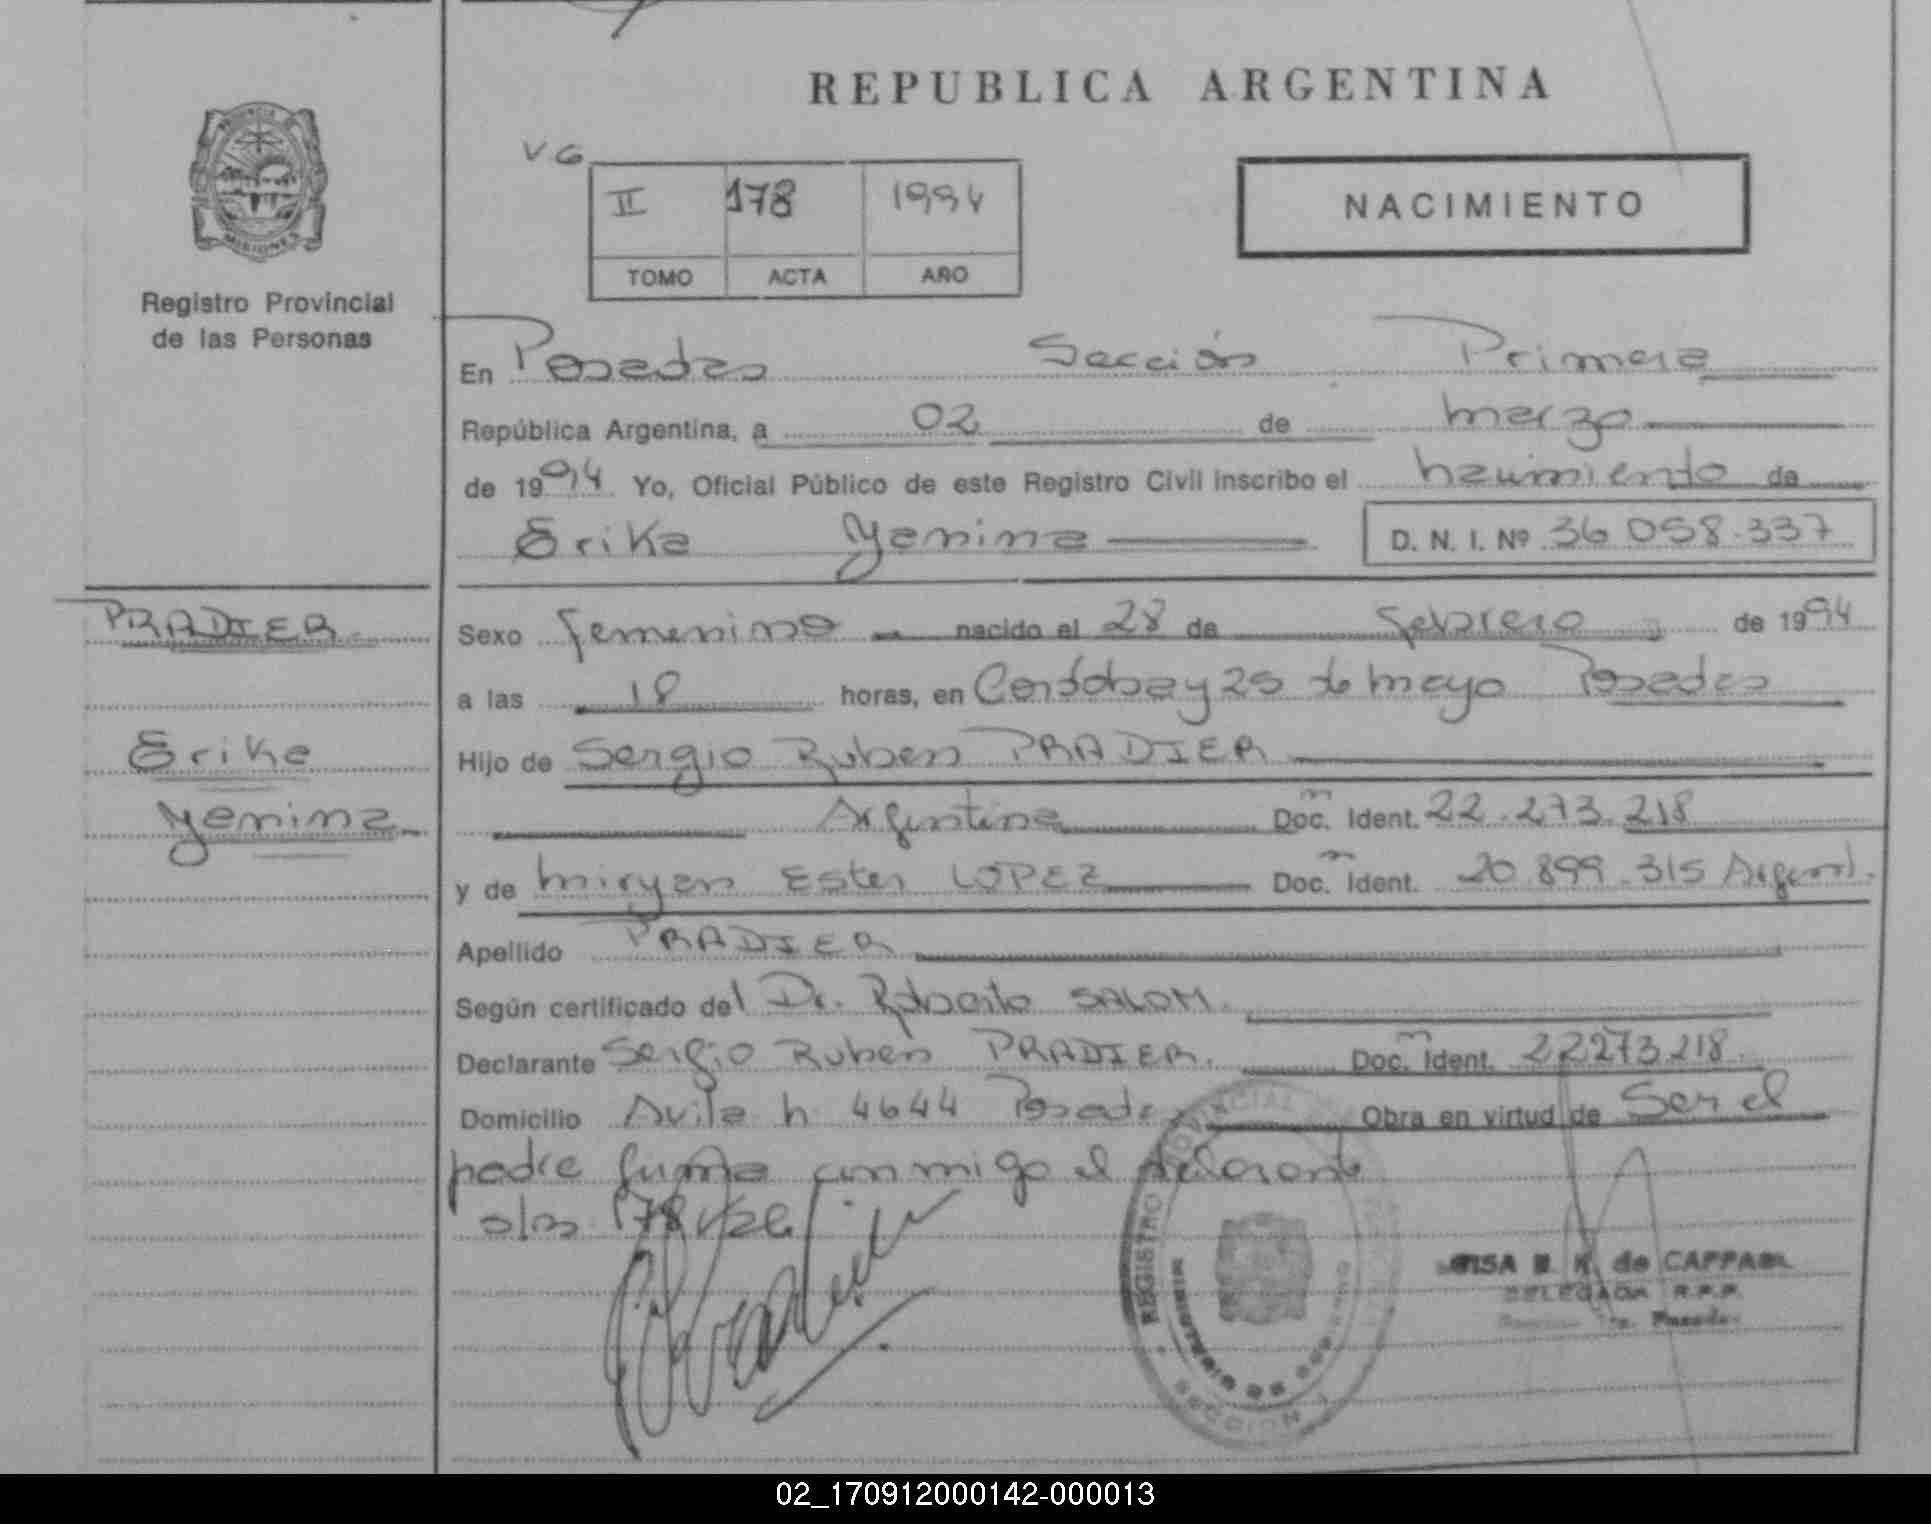 REPUBLICA ARGENTINA
PROVINCIA
MISIONES
Registro Provincial
de las Personas
VG
II 178 1994
TOMO ACTA AÑO
NACIMIENTO
En Posadas Sección Primera
República Argentina, a 02 de marzo
de 1994 Yo, Oficial Público de este Registro Civil inscribo el nacimiento de
Erika Yanina D. N. I. Nº 36 058.337
PRADIER
Erika
Yanina
Sexo femenino nacido el 28 de febrero de 1994
a las 18 horas, en Cordoba y 25 de mayo Posadas
Hijo de Sergio Ruben PRADIER
Argentina Doc. Ident. 22.273.218
y de Miryan Ester LOPEZ Doc. Ident. 20.899.315 Argent.
Apellido PRADIER
Según certificado del Dr. Roberto SALOM.
Declarante Sergio Ruben PRADIER. Doc. Ident. 22273218
Domicilio Avila h 4644 Posadas Obra en virtud de Ser el
padre firma conmigo el declarante
178
REGISTRO PROVINCIAL
MINISTERIO DE GOBIERNO
SECCION 1
de CAPPA
DELEGADA R.P.P.
Posadas
02_170912000142-000013